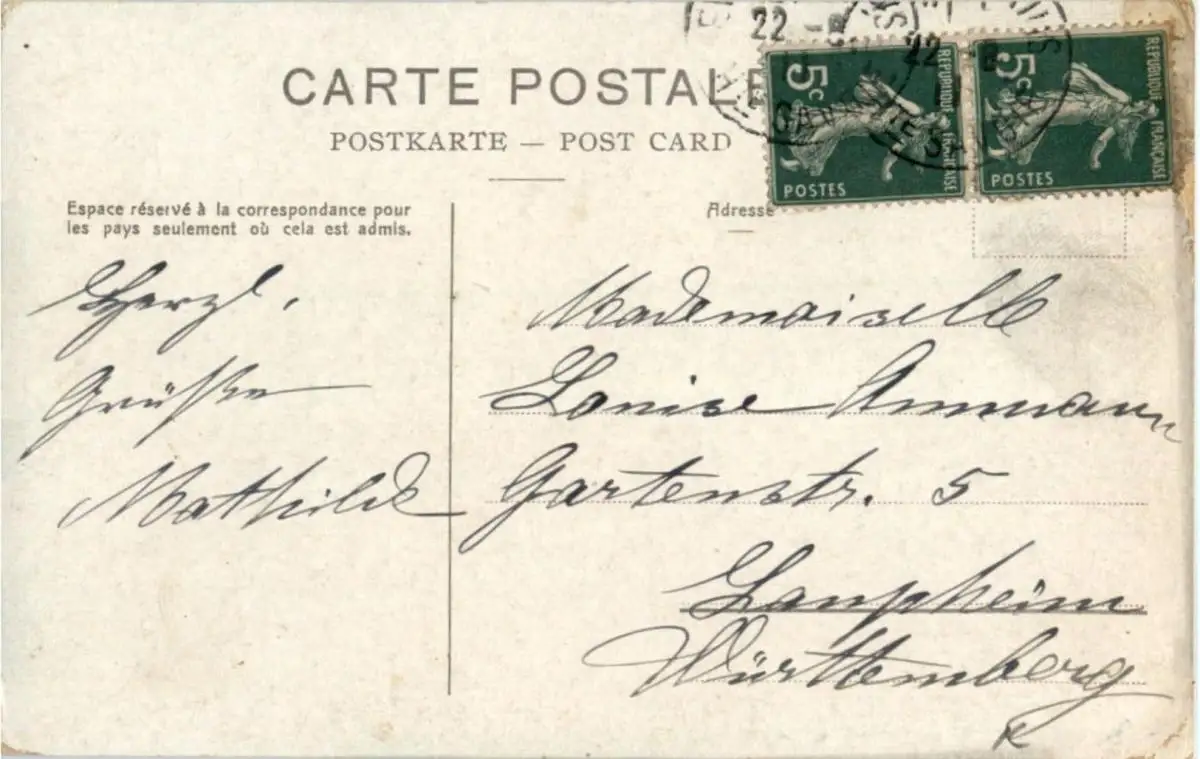 CARTE POSTALE
POSTKARTE — POST CARD
5c
POSTES
RÉPUBLIQUE FRANÇAISE
5c
POSTES
RÉPUBLIQUE FRANÇAISE
22
22
Espace réservé à la correspondance pour
les pays seulement où cela est admis.
Adresse
Herzl.
Grüße
Mathilde
Mademaiselle
Louise Ammann
Gartenstr. 5
Laupheim
Württemberg